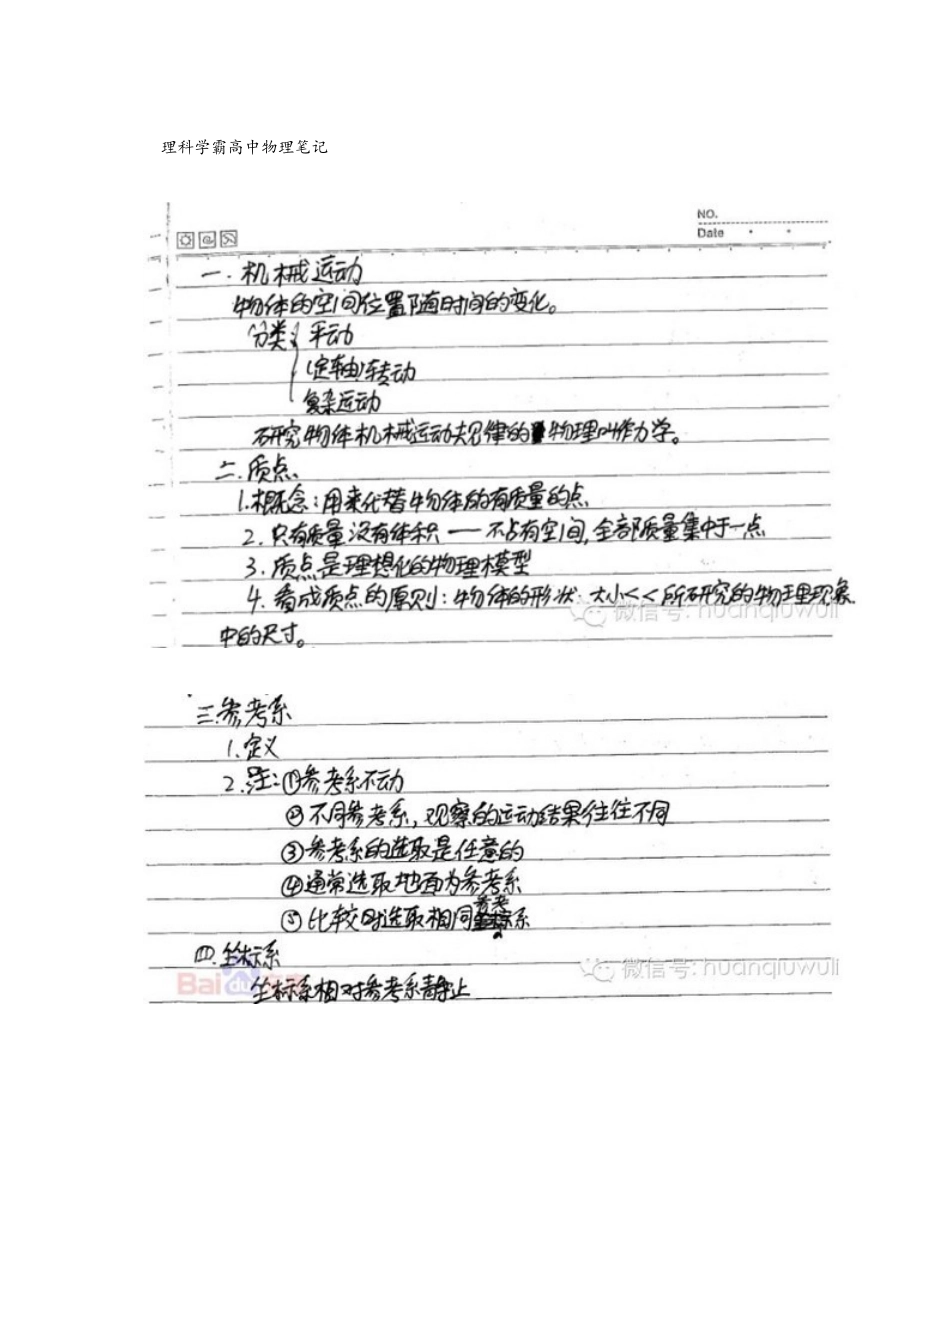 理科学霸高中物理笔记
NO.
Date
一.机械运动
物体的空间位置随时间的变化。
分类 平动
(定轴)转动
复杂运动
研究物体机械运动规律的物理叫作力学。
二.质点
1.概念:用来代替物体的有质量的点
2.只有质量没有体积——不占有空间,全部质量集中于一点
3.质点是理想化的物理模型
4.看成质点的原则:物体的形状、大小<<所研究的物理现象
微信号: huanqiuwuli
中的尺寸。
三.参考系
1.定义
2.注:①参考系不动
②不同参考系,观察的运动结果往往不同
③参考系的选取是任意的
④通常选取地面为参考系
⑤比较时选取相同参考系
四.坐标系
微信号: huanqiuwuli
Bai du
坐标系相对参考系静止